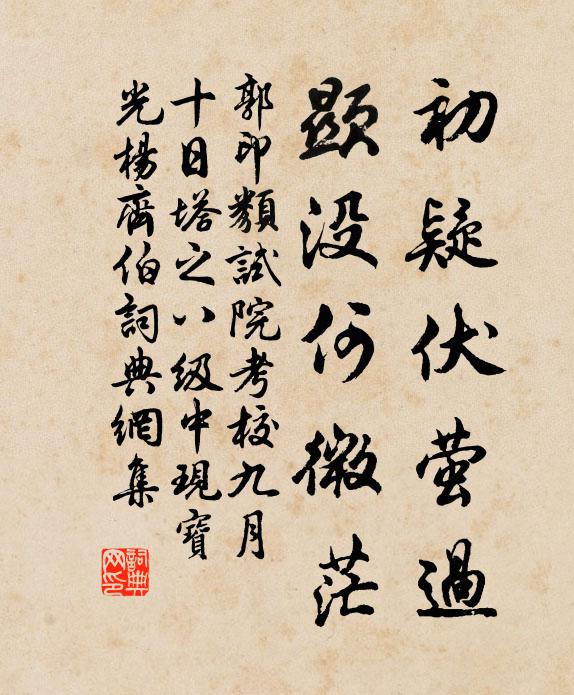 初疑伏萤過
顯没何微茫
郭印類試院考校九月
十日塔之八级中現寶
光楊齊伯詞典網集
詞典
网印